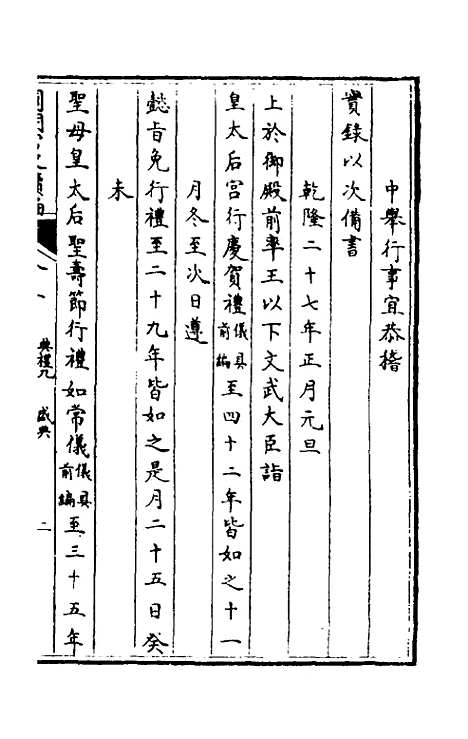 中舉行事宜恭稽
實錄以次備書
乾隆二十七年正月元旦
上於御殿前率王以下文武大臣詣
皇太后宮行慶賀禮儀具前編至四十二年皆如之十一
月冬至次日遵
懿旨免行禮至二十九年皆如之是月二十五日癸
未
聖母皇太后聖壽節行禮如常儀儀具前編至三十五年
典禮九 盛典 二